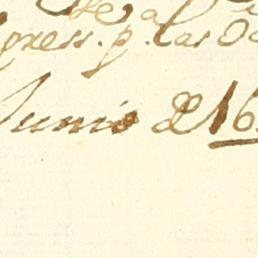 press. p. las O
Junio de 16